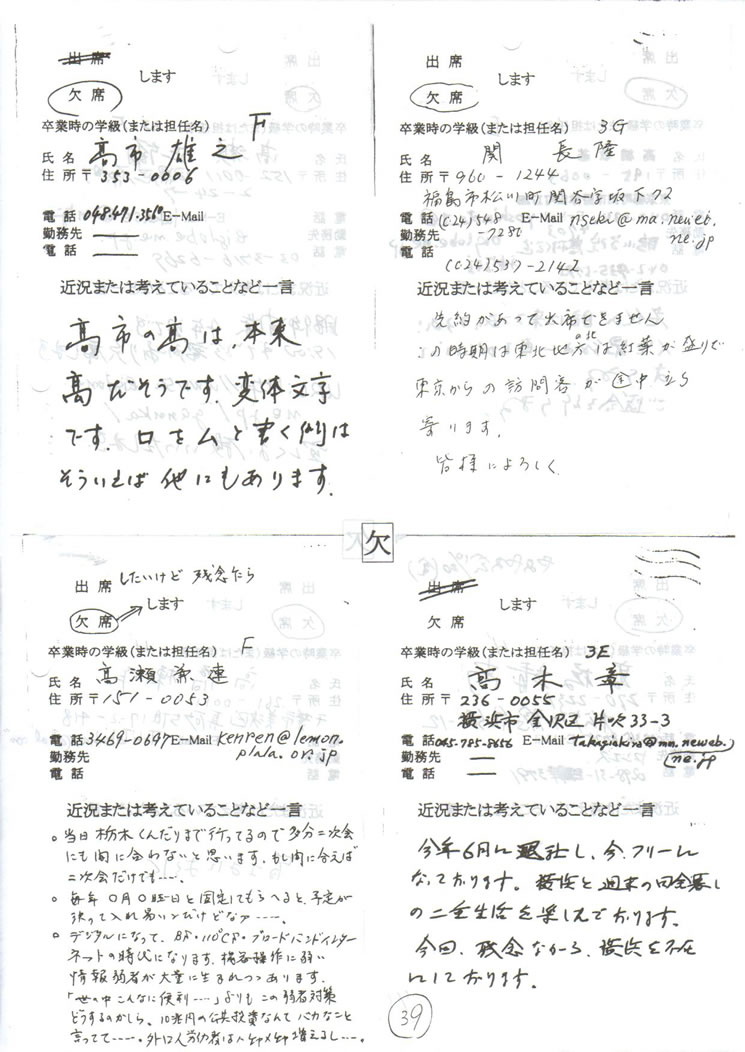 出席
欠席
します
卒業時の学級(または担任名) F
氏名 髙市 雄之
住所〒353-0606
電話 048.471.3510 E-Mail
勤務先
電話
近況または考えていることなど一言
髙市の髙は、本来
高だそうです。変体文字
です。口をムと書く例は
そういえば他にもあります。
出席
欠席
します
卒業時の学級(または担任名) 3G
氏名 関 長隆
住所〒960-1244
福島市松川町関谷字坂下72
電話 (024)548 E-Mail nseki@ma.neweb.
勤務先 -7286 ne.jp
電話
(024)537-2142
近況または考えていることなど一言
先約があって出席できません
この時期は東北地方は紅葉が盛りで
東京からの訪問客が
寄ります。
皆様によろしく
欠
出席 したいけど 残念なら
欠席
します
卒業時の学級(または担任名) F
氏名 高瀬 兼連
住所〒151-0053
電話 3469-0697 E-Mail kenren@lemon.
勤務先 plala.or.jp
電話
近況または考えていることなど一言
○ 当日栃木くんだりまで行ってるので多分二次会
にも間に合わないと思います。もし間に合えば
二次会だけでも……。
○ 毎年〇月〇曜日と固定してもらへると、予定が
決って入れ易いンだけどなァ……。
○ デジタルになって、BS・110°CS・ブロードバンドインター
ネットの時代になります。機器操作に弱い
情報弱者が大量に生まれつつあります。
「世の中こんなに便利……」よりもこの弱者対策
どうするのかしら。10兆円の公共投資なんてバカなこと
言ってて……。外口人労働者は
出席
欠席
します
卒業時の学級(または担任名) 3E
氏名 髙木 章
住所〒236-0055
横浜市金沢区片吹33-3
電話 045-785-8656 E-Mail takagiakira@mn.neweb.
勤務先 ne.jp
電話
近況または考えていることなど一言
今年6月に退社し、今、フリーに
なっております。横浜と週末の田舎暮し
の二重生活を楽しんでおります。
今回、残念ながら、横浜を不在
にしております。
39